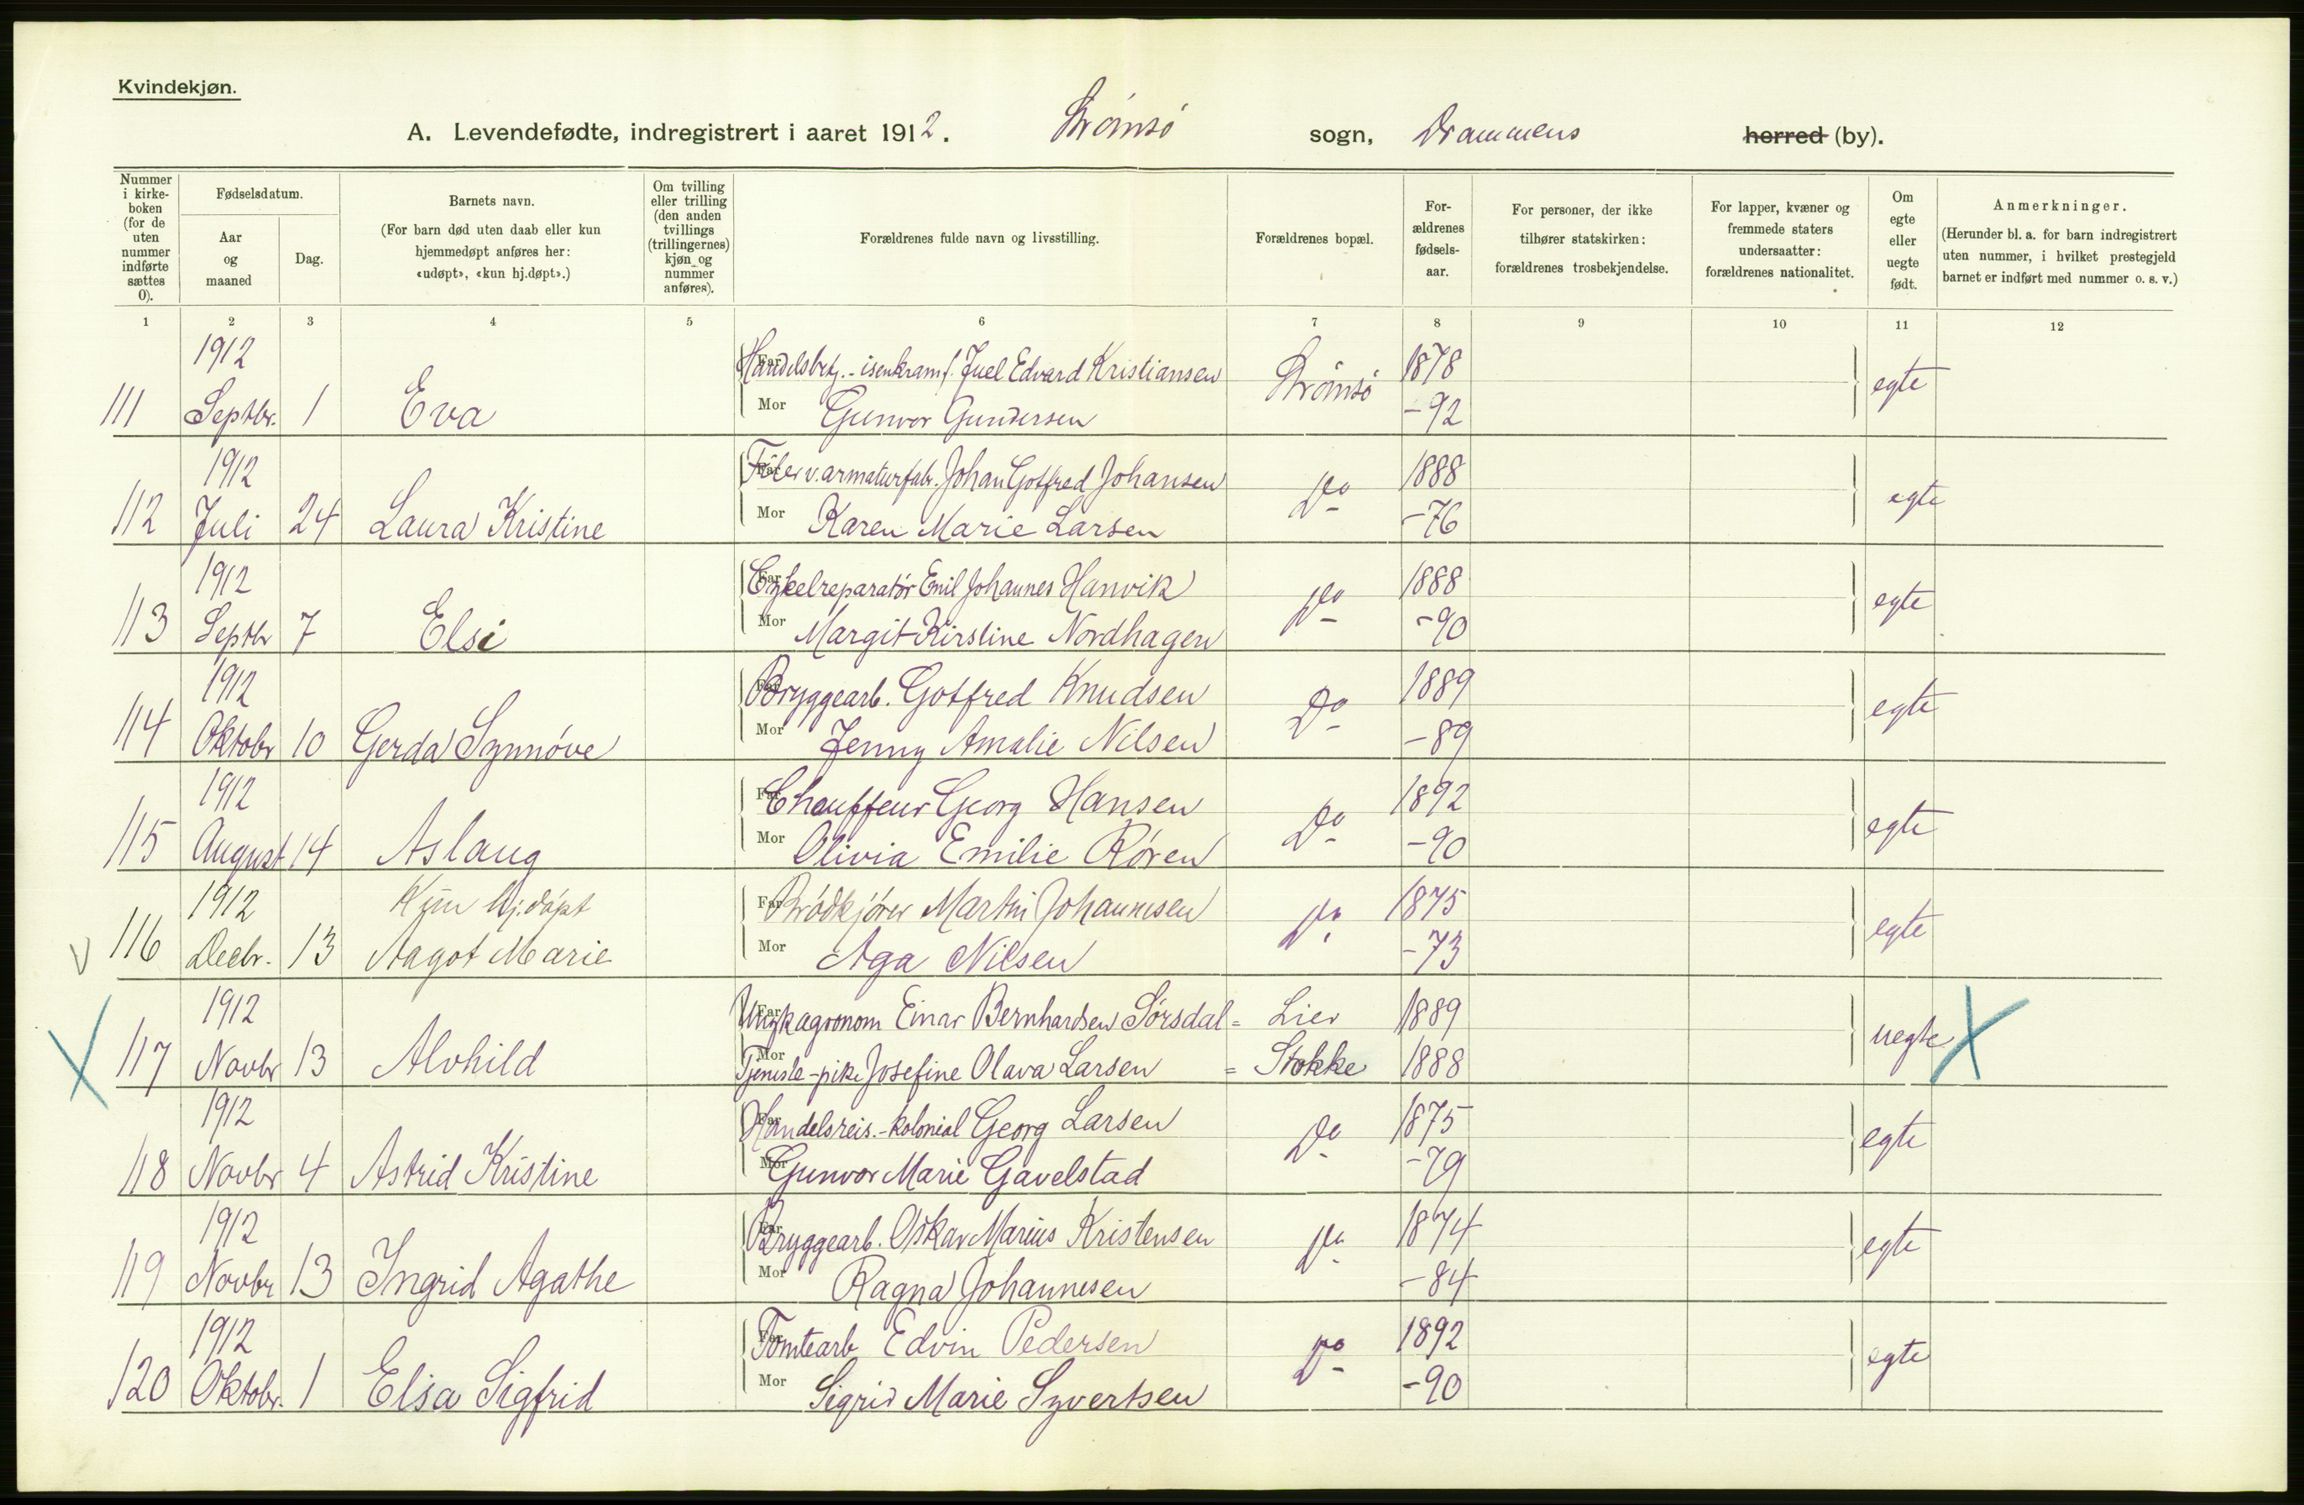 Kvindekjøn.
A. Levendefødte, indregistrert i aaret 1912. Strømsø sogn, Drammens herred (by).
Nummer i kirke-boken (for de uten nummer indførte sættes 0).
Fødselsdatum.
Aar og maaned
Dag.
Barnets navn.
(For barn død uten daab eller kun hjemmedøpt anføres her: «udøpt», «kun hj.døpt».)
Om tvilling eller trilling (den anden tvillings (trillingernes) kjøn og nummer anføres).
Forældrenes fulde navn og livsstilling.
Forældrenes bopæl.
For-ældrenes fødsels-aar.
For personer, der ikke tilhører statskirken: forældrenes trosbekjendelse.
For lapper, kvæner og fremmede staters undersaatter: forældrenes nationalitet.
Om egte eller uegte født.
Anmerkninger.
(Herunder bl. a. for barn indregistrert uten nummer, i hvilket prestegjeld barnet er indført med nummer o. s. v.)
1 2 3 4 5 6 7 8 9 10 11 12
1912 Far Handelsbetj. - isenkramf. Juel Edvard Kristiansen Strømsø 1878 egte
111 Septbr. 1 Eva Mor Gunvor Gundersen -92
1912 Far Filer v. armaturfabr. Johan Gotfred Johansen Do 1888 egte
112 Juli 24 Laura Kristine Mor Karen Marie Larsen -76
1912 Far Cykelreparatør Emil Johannes Hanvik Do 1888 egte
113 Septbr 7 Elsi Mor Margit Kirstine Nordhagen -90
1912 Far Bryggearb. Gotfred Knudsen Do 1889 egte
114 Oktobr 10 Gerda Synnøve Mor Jenny Amalie Nilsen -89
1912 Far Chauffeur Georg Hansen Do 1892 egte
115 August 14 Aslaug Mor Olivia Emilie Røren -90
1912 Kun hj.døpt Far Brødkjører Martin Johannesen Do 1875 egte
V 116 Decbr. 13 Aagot Marie Mor Aga Nilsen -73
1912 Far agronom Einar Bernhardsen Sørsdal = Lier 1889 uegte X
X 117 Novbr 13 Alvhild Mor Tjeneste-pike Josefine Olava Larsen = Stokke 1888
1912 Far Handelsreis. - kolonial Georg Larsen Do 1875 egte
118 Novbr 4 Astrid Kristine Mor Gunvor Marie Gavelstad -79
1912 Far Bryggearb. Oskar Marius Kristensen Do 1874 egte
119 Novbr 13 Ingrid Agathe Mor Ragna Johannesen -84
1912 Far Tomtearb Edvin Pedersen Do 1892 egte
120 Oktobr. 1 Elsa Sigfrid Mor Sigrid Marie Syvertsen -90